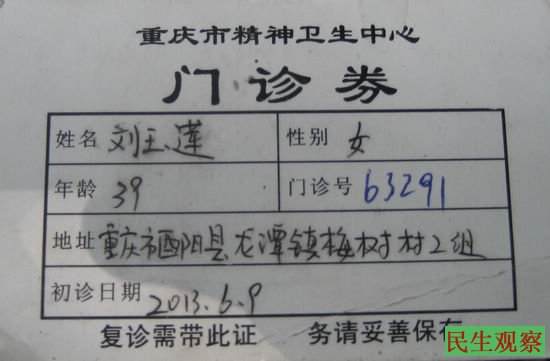 重庆市精神卫生中心
门诊券
姓名 刘玉莲 性别 女
年龄 39 门诊号 63291
地址 重庆市酉阳县龙潭镇梅树村2组
初诊日期 2013.6.9
复诊需带此证 务请妥善保存
民生观察